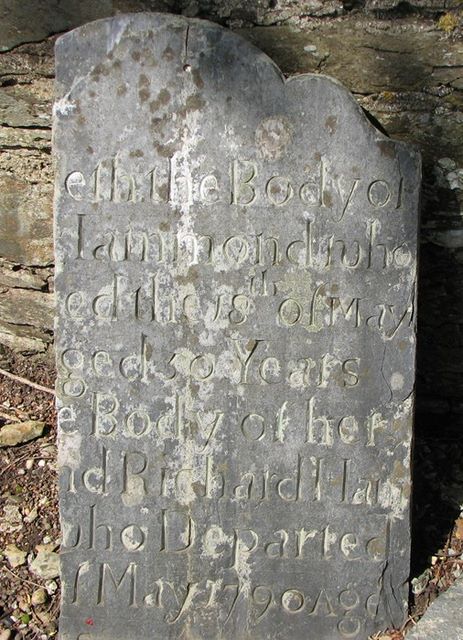 eth the Body of
Hammond who
ed the 18th of May
ged 50 Years
e Body of her
nd Richard Ham
who Departed
f May 1790 Age